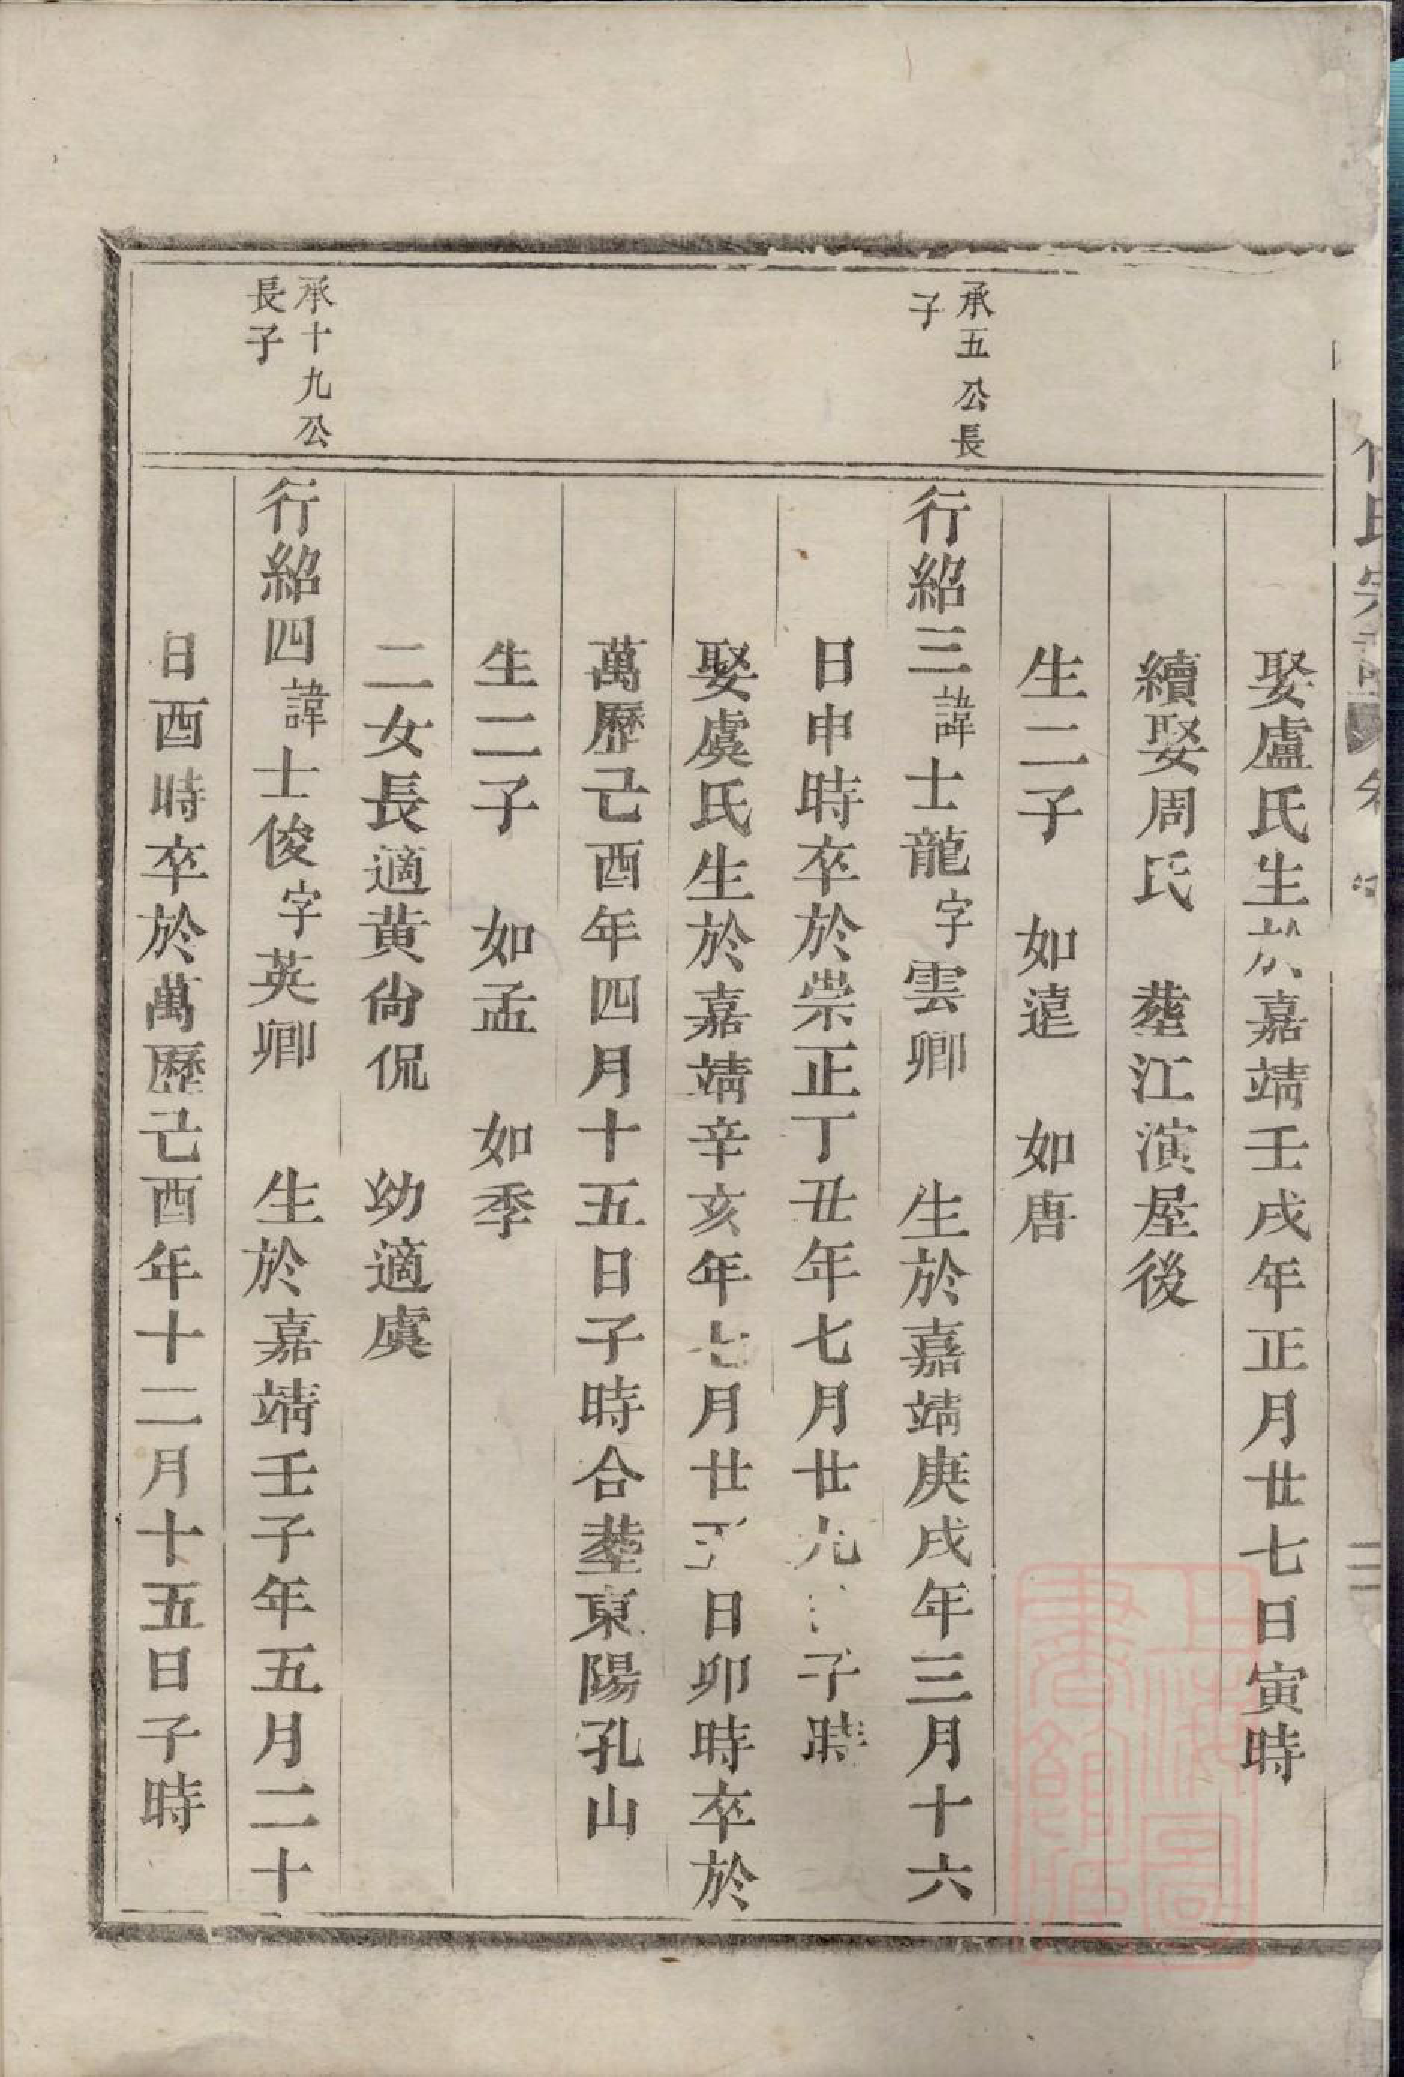 娶盧氏生於嘉靖壬戌年正月廿七日寅時
續娶周氏　塟江演屋後
生二子　如遠　如唐
承五公長
子
行紹三諱士龍字雲卿　生於嘉靖庚戌年三月十六
日申時卒於崇正丁丑年七月廿九 子時
娶虞氏生於嘉靖辛亥年七月廿 日卯時卒於
萬歷己酉年四月十五日子時合塟東陽孔山
生二子　如孟　如季
二女長適黄尙侃　幼適虞
承十九公
長子
行紹四諱士俊字英卿　生於嘉靖壬子年五月二十
日酉時卒於萬歷己酉年十二月十五日子時